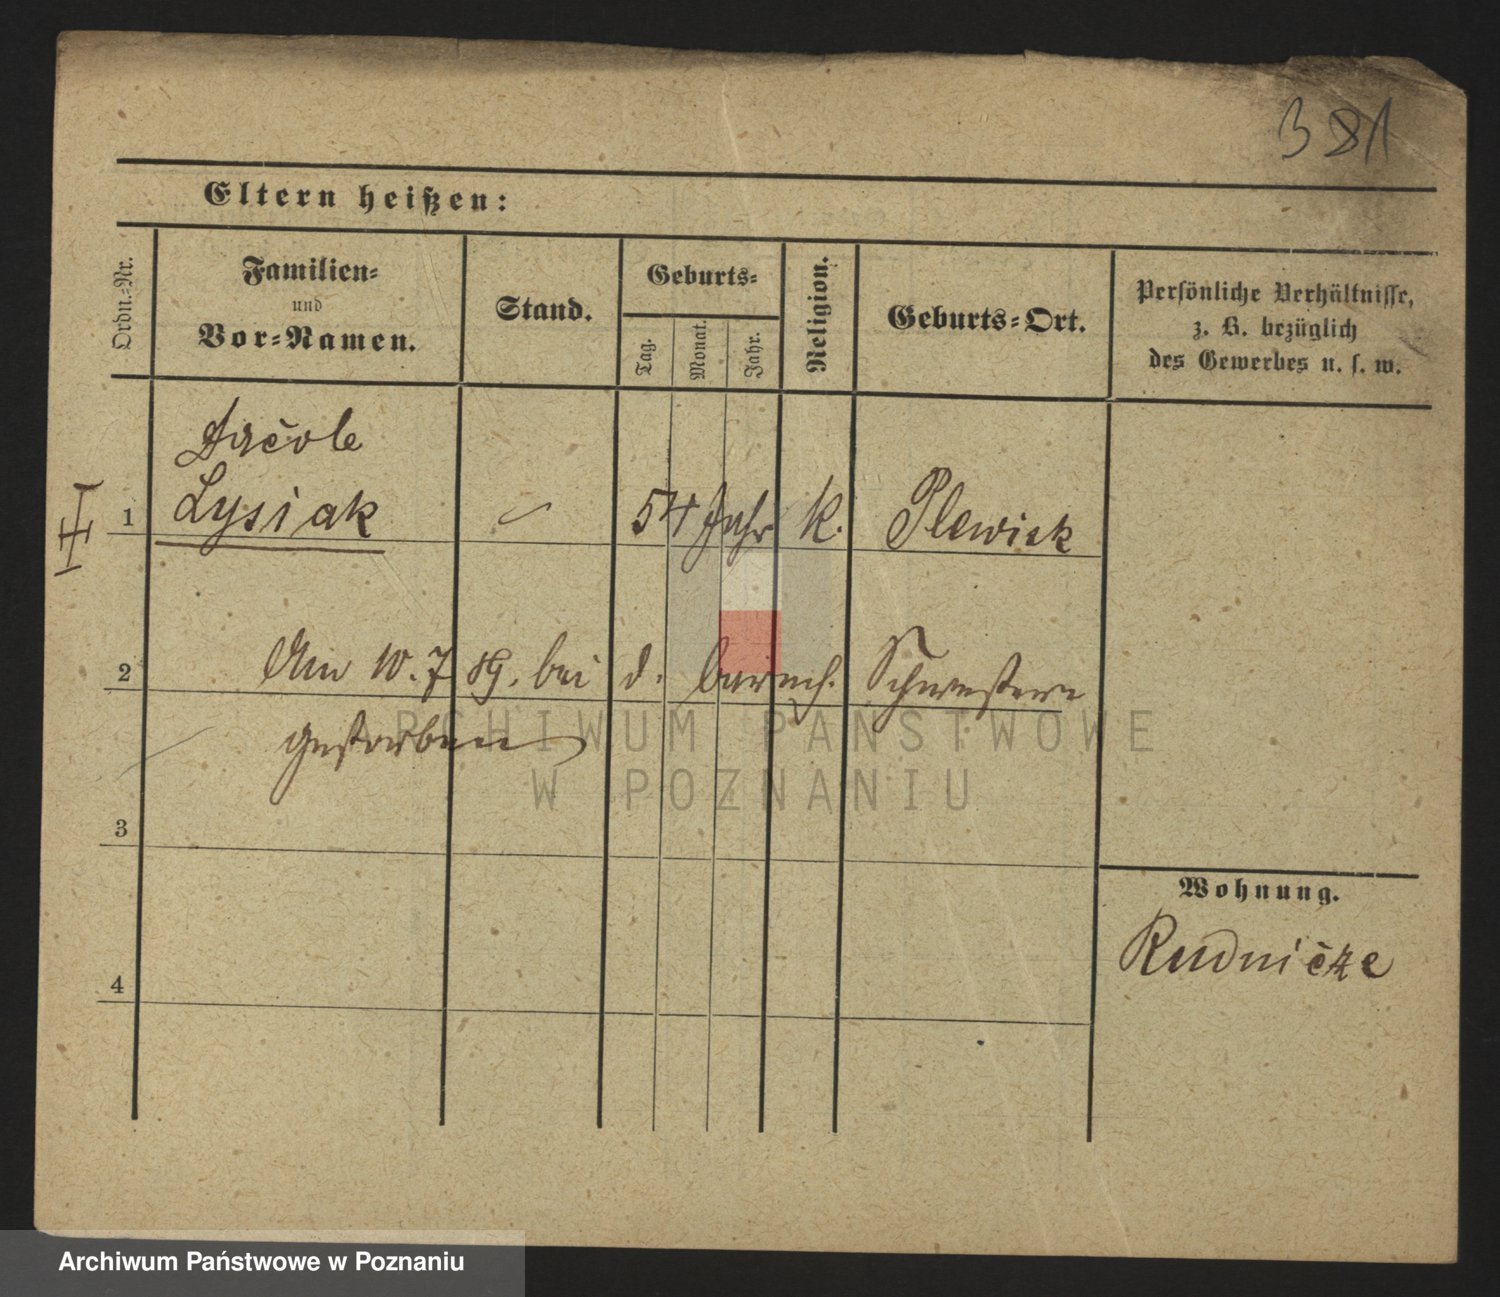 381
Eltern heißen:
Ordn.-Nr.
Familien-
und
Vor-Namen.
Stand.
Geburts-
Tag.
Monat.
Jahr.
Religion.
Geburts-Ort.
Persönliche Verhältnisse,
z. B. bezüglich
des Gewerbes u. s. w.
Jacob
1 Lysiak 54 Jahr K. Plewisk
2 Am 10.7 89. bei d. barmh. Schwestern
gestorben
3
4
Wohnung.
Rudnicze
ARCHIWUM PAŃSTWOWE
W POZNANIU
Archiwum Państwowe w Poznaniu